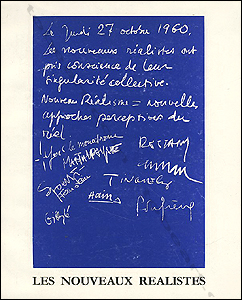 Le Jeudi 27 octobre 1960.
Les nouveaux réalistes ont
pris conscience de leur
singularité collective.
Nouveau Réalisme = nouvelle
approches perceptives du
réel
Yves le monochrome
RESTANY
TINGUELY
Arman
Dufrêne
LES NOUVEAUX REALISTES